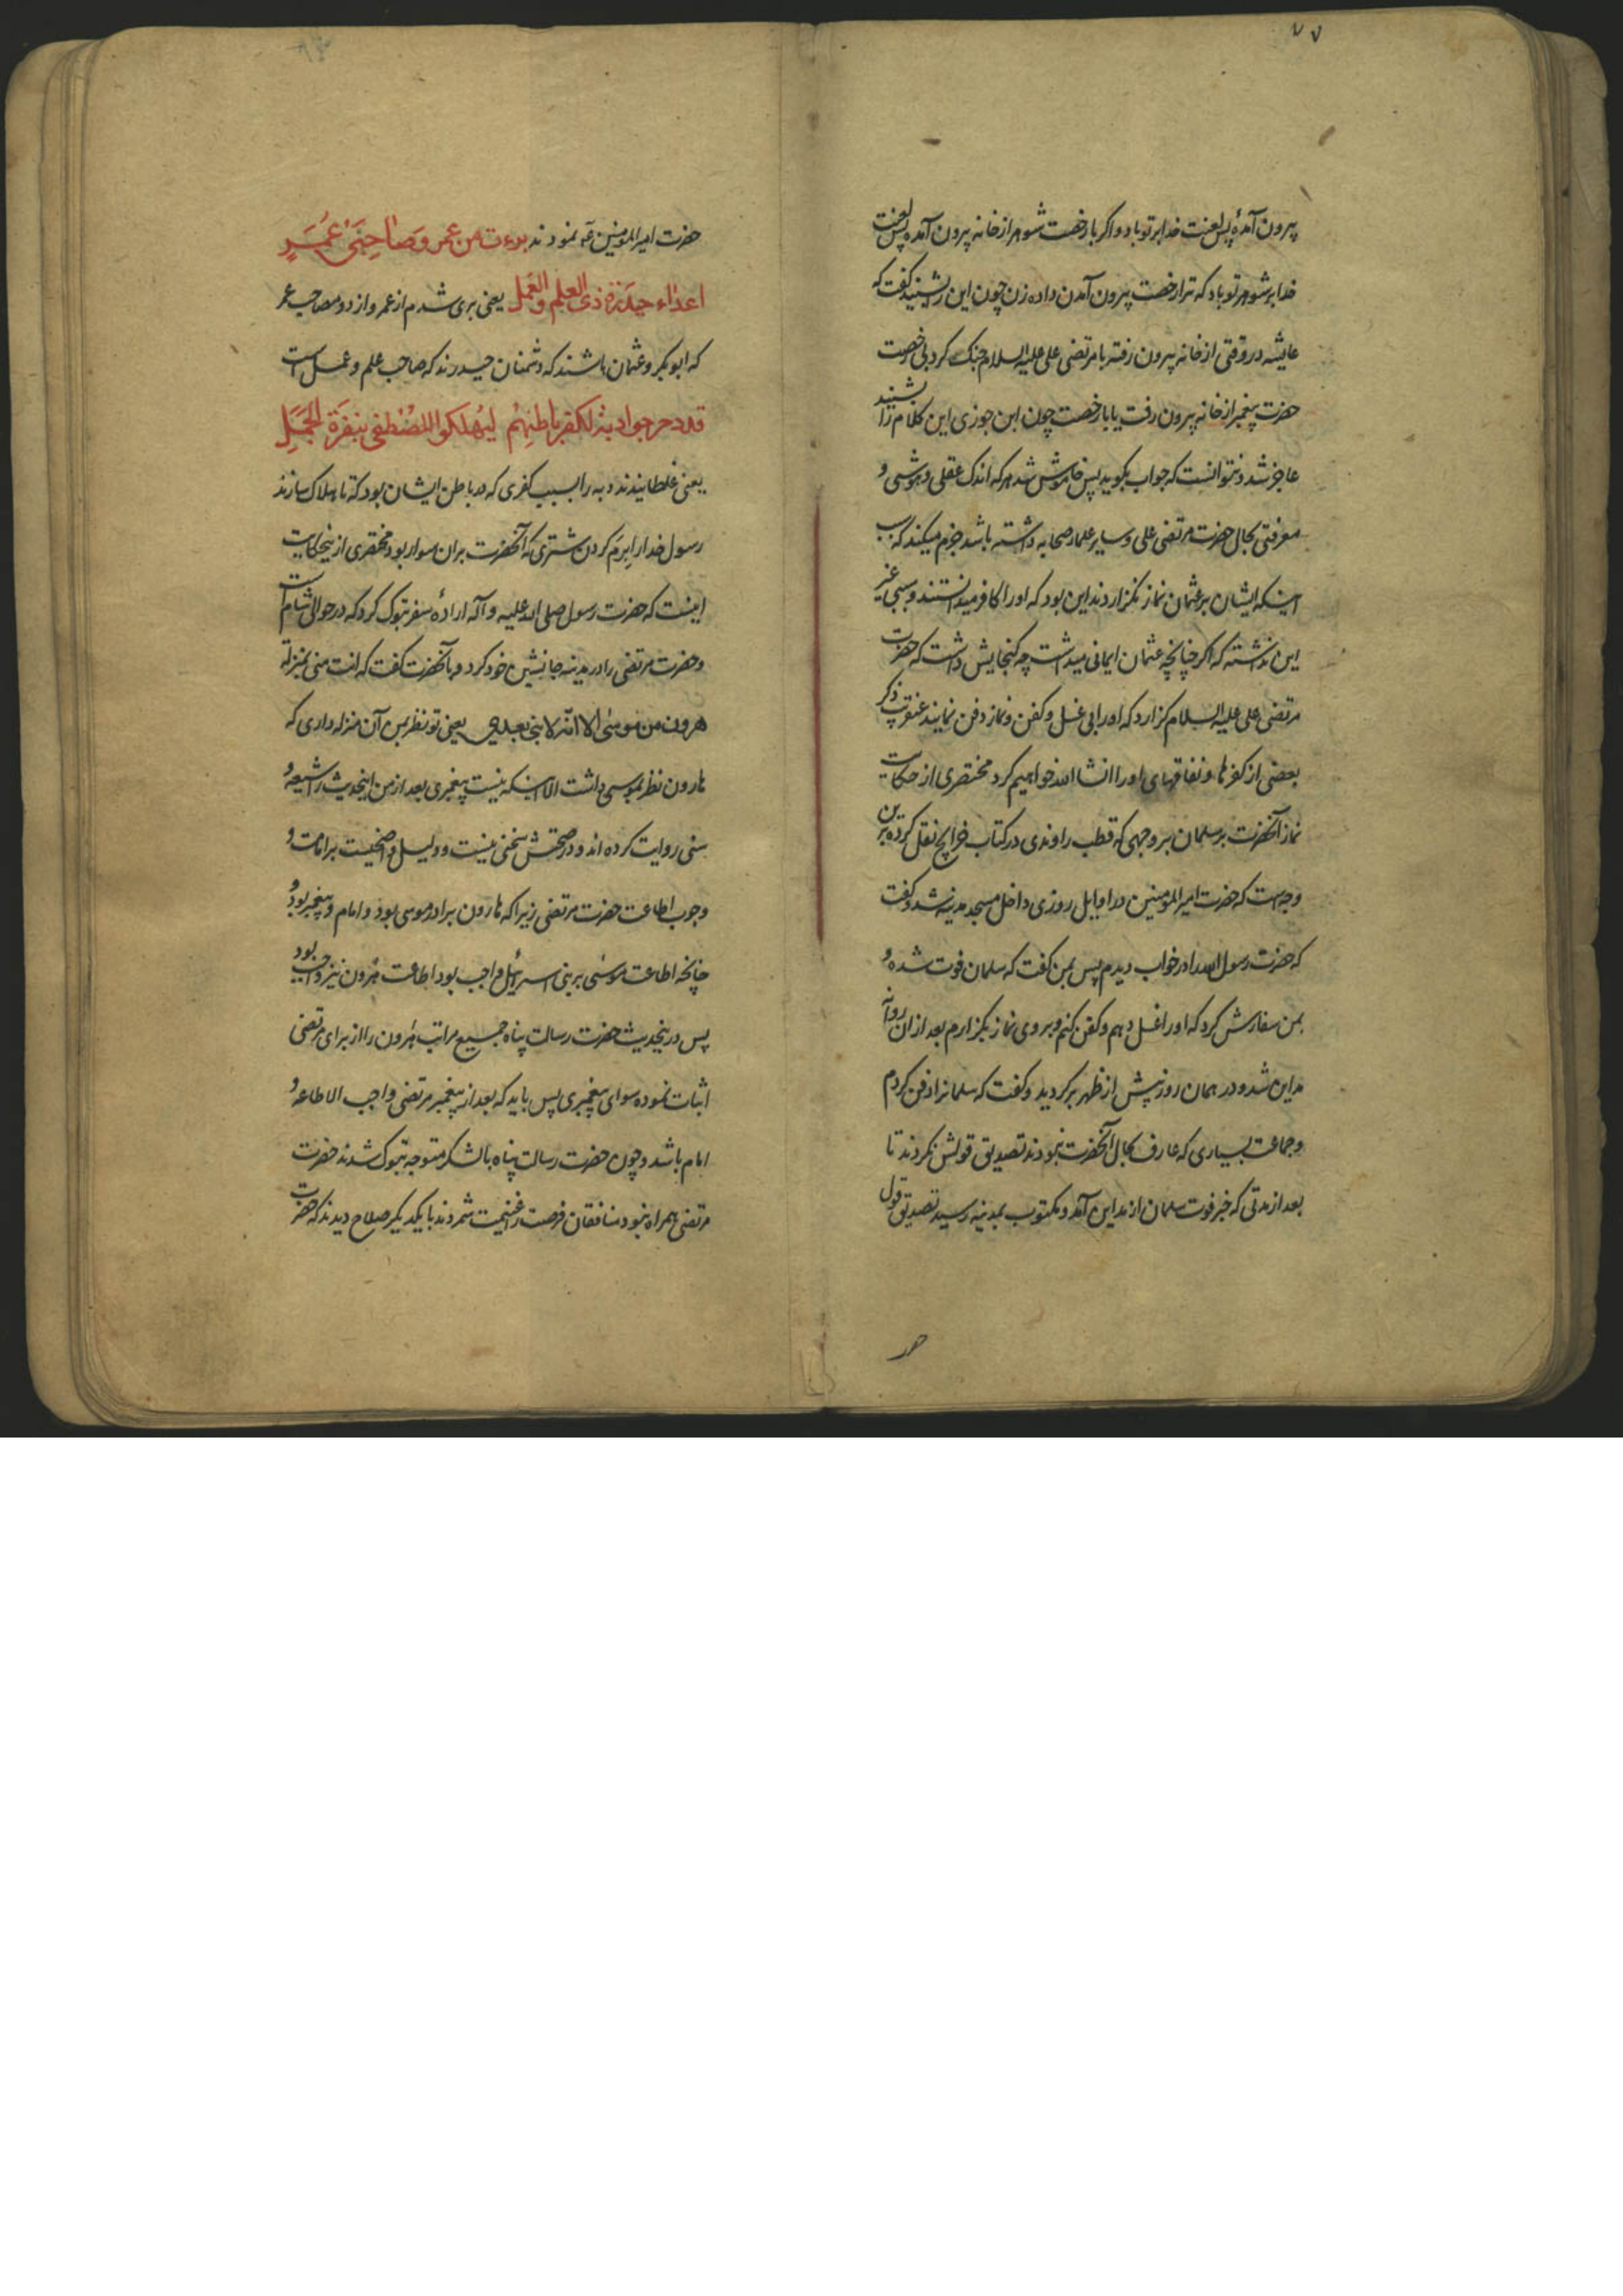 ۷۷
بیرون آمدهٔ پس لعنت خدا بر تو باد و اگر با رخصت شوهر از خانه بیرون آمده پس لعنت
خدا بر شوهر تو باد که ترا رخصت بیرون آمدن داده زن چون این را شنید گفت که
عایشه در وقتی از خانه بیرون رفته با مرتضی علی علیه السلام جنک کرد بی رخصت
حضرت پیغمبر از خانه بیرون رفت یا با رخصت چون ابن جوزی این کلام را شنید
عاجز شد و نتوانست که جواب بگوید پس خاموش شد هر که اندک عقلی و هوشی و
معرفتی بحال حضرت مرتضی علی و سایر علماء صحابه داشته باشد جزم میکند که سبب
اینکه ایشان بر عثمان نماز نگزاردند این بود که او را کافر میدانستند و سببی غیر
این نداشته که اگر چنانچه عثمان ایمانی میداشت چه کنجایش داشت که حضرت
مرتضی علی علیه السلام گزارد که او را بی غسل و کفن و نماز دفن نمایند عنقریب ذکر
بعضی از کفرها و نفاقهای او را انشا الله خواهیم کرد مختصری از حکایت
نماز آنحضرت بر سلمان بر وجهی که قطب راوندی در کتاب خرایج نقل کرده برین
وجهست که حضرت امیر المومنین در اوایل روزی داخل مسجد مدینه شد و گفت
که حضرت رسول الله را در خواب دیدم پس بمن گفت که سلمان فوت شده و
بمن سفارش کرد که او را غسل دهم و کفن کنم و بر وی نماز بگزارم بعد از ان روانه
مداین شد و در همان روز پیش از ظهر برگردید و گفت که سلمانرا دفن کردم
و جماعت بسیاری که عارف بحال آنحضرت نبودند تصدیق قولش نکردند تا
بعد از مدتی که خبر فوت سلمان از مداین آمد و مکتوب بمدینه رسید تصدیق قول
حضرت امیر المومنین عه نمودند برءت من عمر و صاحبی عمر
اعداء حیدرة ذی العلم و العمل یعنی بری شدم از عمر و از دو مصاحب عمر
که ابوبکر و عثمان باشند که دشمنان حیدرند که صاحب علم و عمل است
قد دحرجوا دبة لکفر باطنهم لیهلکوا المصطفی بنفرة الجمل
یعنی غلطانیدند دبه را بسبب کفری که در باطن ایشان بود که تا هلاک سازند
رسول خدا را برم کردن شتری که آنحضرت بران سوار بود مختصری ازینحکایت
اینست که حضرت رسول صلی الله علیه و آله ارادهٔ سفر تبوک کرد که در حوالی شام است
و حضرت مرتضی را در مدینه جانشین خود کرد و بآنحضرت گفت که انت منی بمنزلة
هرون من موسی الا انه لا نبی بعدی یعنی تو نظر بمن آن منزله داری که
هارون نظر بموسی داشت الا اینکه نیست پیغمبری بعد از من اینحدیث را شیعه و
سنی روایت کرده اند و در صحتش سخنی نیست و دلیل واضحیست بر امامت و
وجوب اطاعت حضرت مرتضی زیرا که هارون برادر موسی بود و امام و پیغمبر بود و
چنانچه اطاعت موسی بر بنی اسرائیل واجب بود اطاعت هرون نیز واجب بود
پس درینحدیث حضرت رسالت پناه جمیع مراتب هرون را از برای مرتضی
اثبات نموده سوای پیغمبری پس باید که بعد از پیغمبر مرتضی واجب الاطاعه و
امام باشد و چون حضرت رسالت پناه با لشکر متوجه تبوک شدند حضرت
مرتضی همراه نبود منافقان فرصت را غنیمت شمردند با یکدیگر صلاح دیدند که حضرت